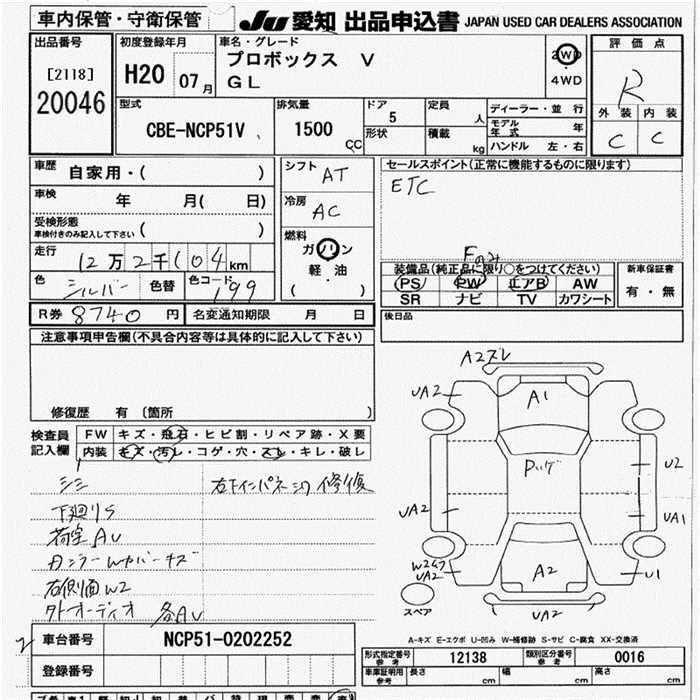 車内保管・守衛保管
JU 愛知 出品申込書 JAPAN USED CAR DEALERS ASSOCIATION
出品番号
[2118]
20046
初度登録年月
H20 07月
車名・グレード
プロボックス V
GL
2WD
・
4WD
評価点
R
外装 内装
C C
型式
CBE-NCP51V
排気量
1500 CC
ドア
5
形状
定員
人
積載
kg
ディーラー・並行
モデル年式 年
ハンドル 左・右
車歴 自家用・( )
車検 年 月( 日)
受検形態
車検付きのみ記入して下さい ( )
走行 12万2千104km
色 シルバー 色替 色コード 199
シフト AT
冷房 AC
燃料
ガソリン
軽・油
( )
セールスポイント(正常に機能するものに限ります)
ETC
Fのみ
装備品(純正品に限り○をつけてください)
PS PW エアB AW
SR ナビ TV カワシート
新車保証書
有・無
R券 8740円 名変通知期限 月 日
後日品
注意事項申告欄(不具合内容等は具体的に記入して下さい)
修復歴 有 (箇所 )
検査員記入欄
FW キズ・飛石・ヒビ割・リペア跡・X要
内装 キズ・汚レ・コゲ・穴・スレ・キレ・破レ
シミ
下廻りS
荷室AU
右側面W2
外オーディオ 各AU
修復
A2ズレ
UA2
A1
UA2
U2
UA2
UA1
A2
UA2
U1
UA2
スペア
A-キズ E-エクボ U-凹み W-補修跡 S-サビ C-腐食 XX-交換済
2
車台番号 NCP51-0202252
登録番号
形式指定番号 参考 12138 類別区分番号 参考 0016
車庫証明用 参考 長さ cm 幅 cm 高さ cm